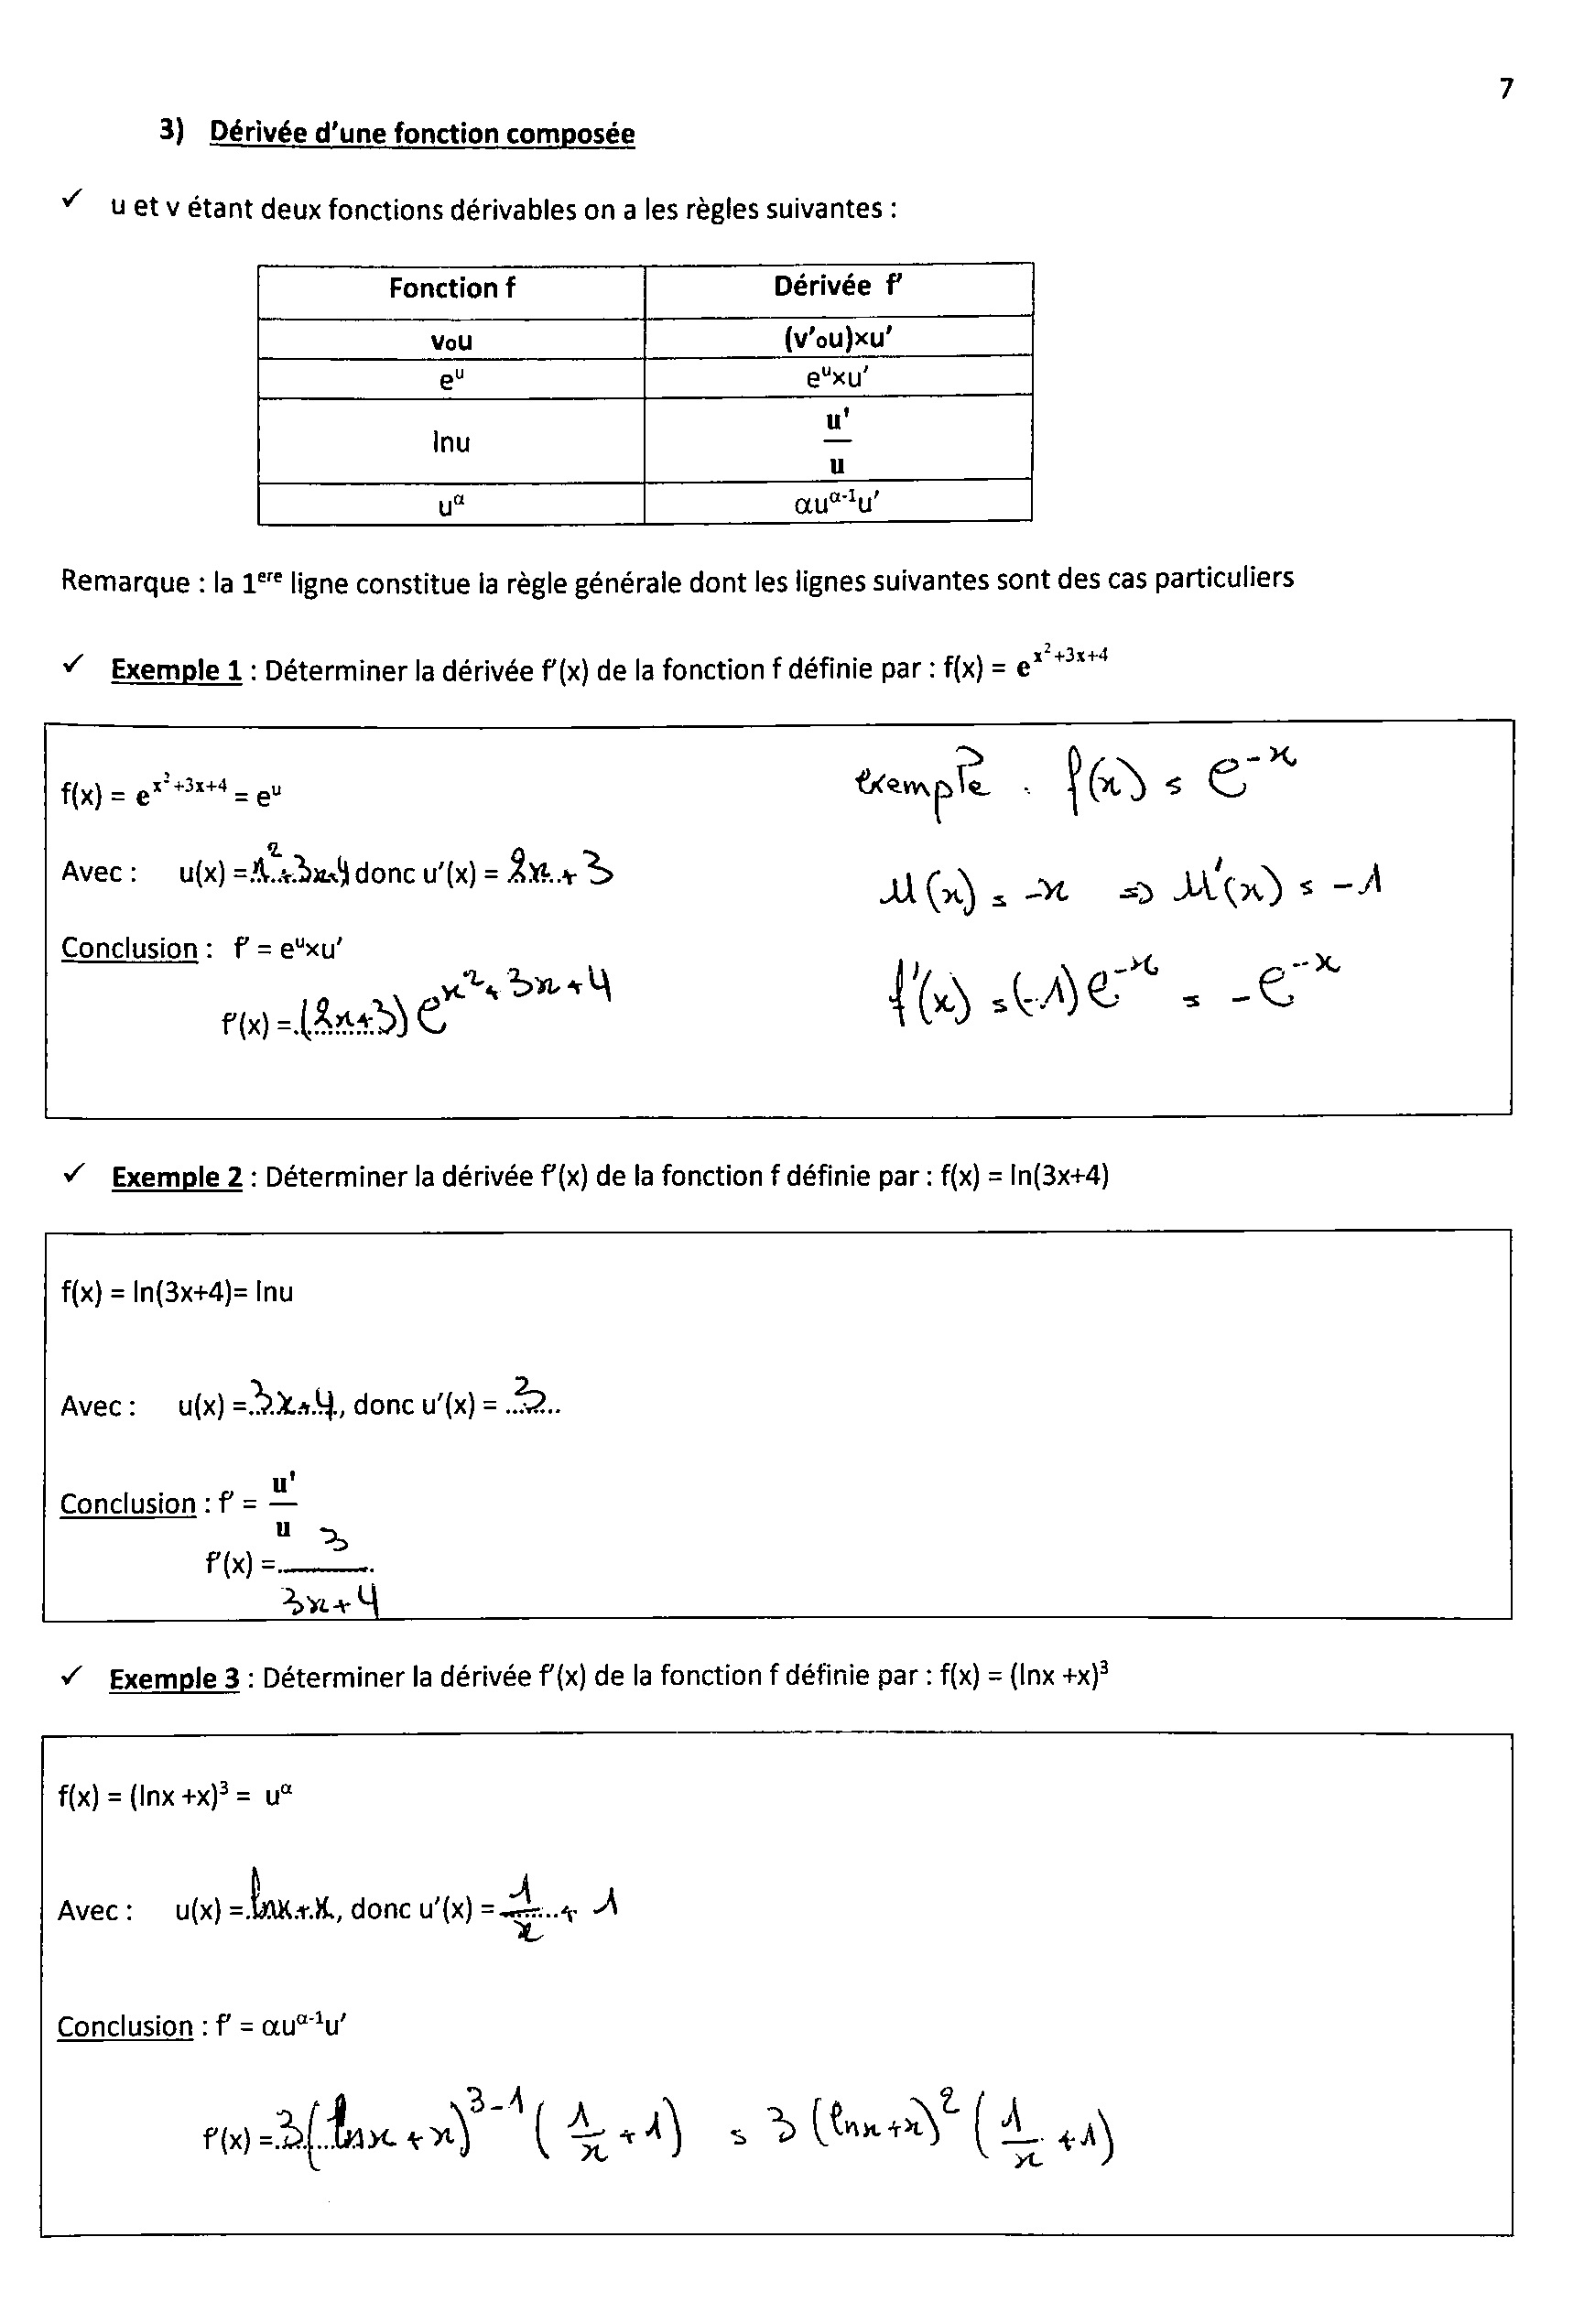 7
3) Dérivée d'une fonction composée
✓ u et v étant deux fonctions dérivables on a les règles suivantes :
Fonction f | Dérivée f'
v∘u | (v'∘u)×u'
e^u | e^u×u'
lnu | u'/u
u^α | αu^(α-1)u'
Remarque : la 1^ere ligne constitue la règle générale dont les lignes suivantes sont des cas particuliers
✓ Exemple 1 : Déterminer la dérivée f'(x) de la fonction f définie par : f(x) = e^(x²+3x+4)
f(x) = e^(x²+3x+4) = e^u
Avec : u(x) = x²+3x+4 donc u'(x) = 2x+3
Conclusion : f' = e^u×u'
f'(x) = (2x+3) e^(x²+3x+4)
exemple : f(x) = e^(-x)
u(x) = -x ⇒ u'(x) = -1
f'(x) = (-1)e^(-x) = -e^(-x)
✓ Exemple 2 : Déterminer la dérivée f'(x) de la fonction f définie par : f(x) = ln(3x+4)
f(x) = ln(3x+4)= lnu
Avec : u(x) = 3x+4, donc u'(x) = 3
Conclusion : f' = u'/u
f'(x) = 3/(3x+4)
✓ Exemple 3 : Déterminer la dérivée f'(x) de la fonction f définie par : f(x) = (lnx +x)³
f(x) = (lnx +x)³ = u^α
Avec : u(x) = lnx+x, donc u'(x) = 1/x + 1
Conclusion : f' = αu^(α-1)u'
f'(x) = 3(lnx+x)^(3-1) (1/x + 1) = 3(lnx+x)² (1/x + 1)